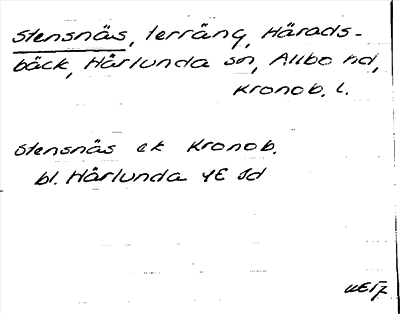 Stensnäs, terräng, Härads-
bäck, Hårlunda sn, Allbo hd,
Kronob. l.
Stensnäs ek Kronob.
bl. Hårlunda 4E Sd